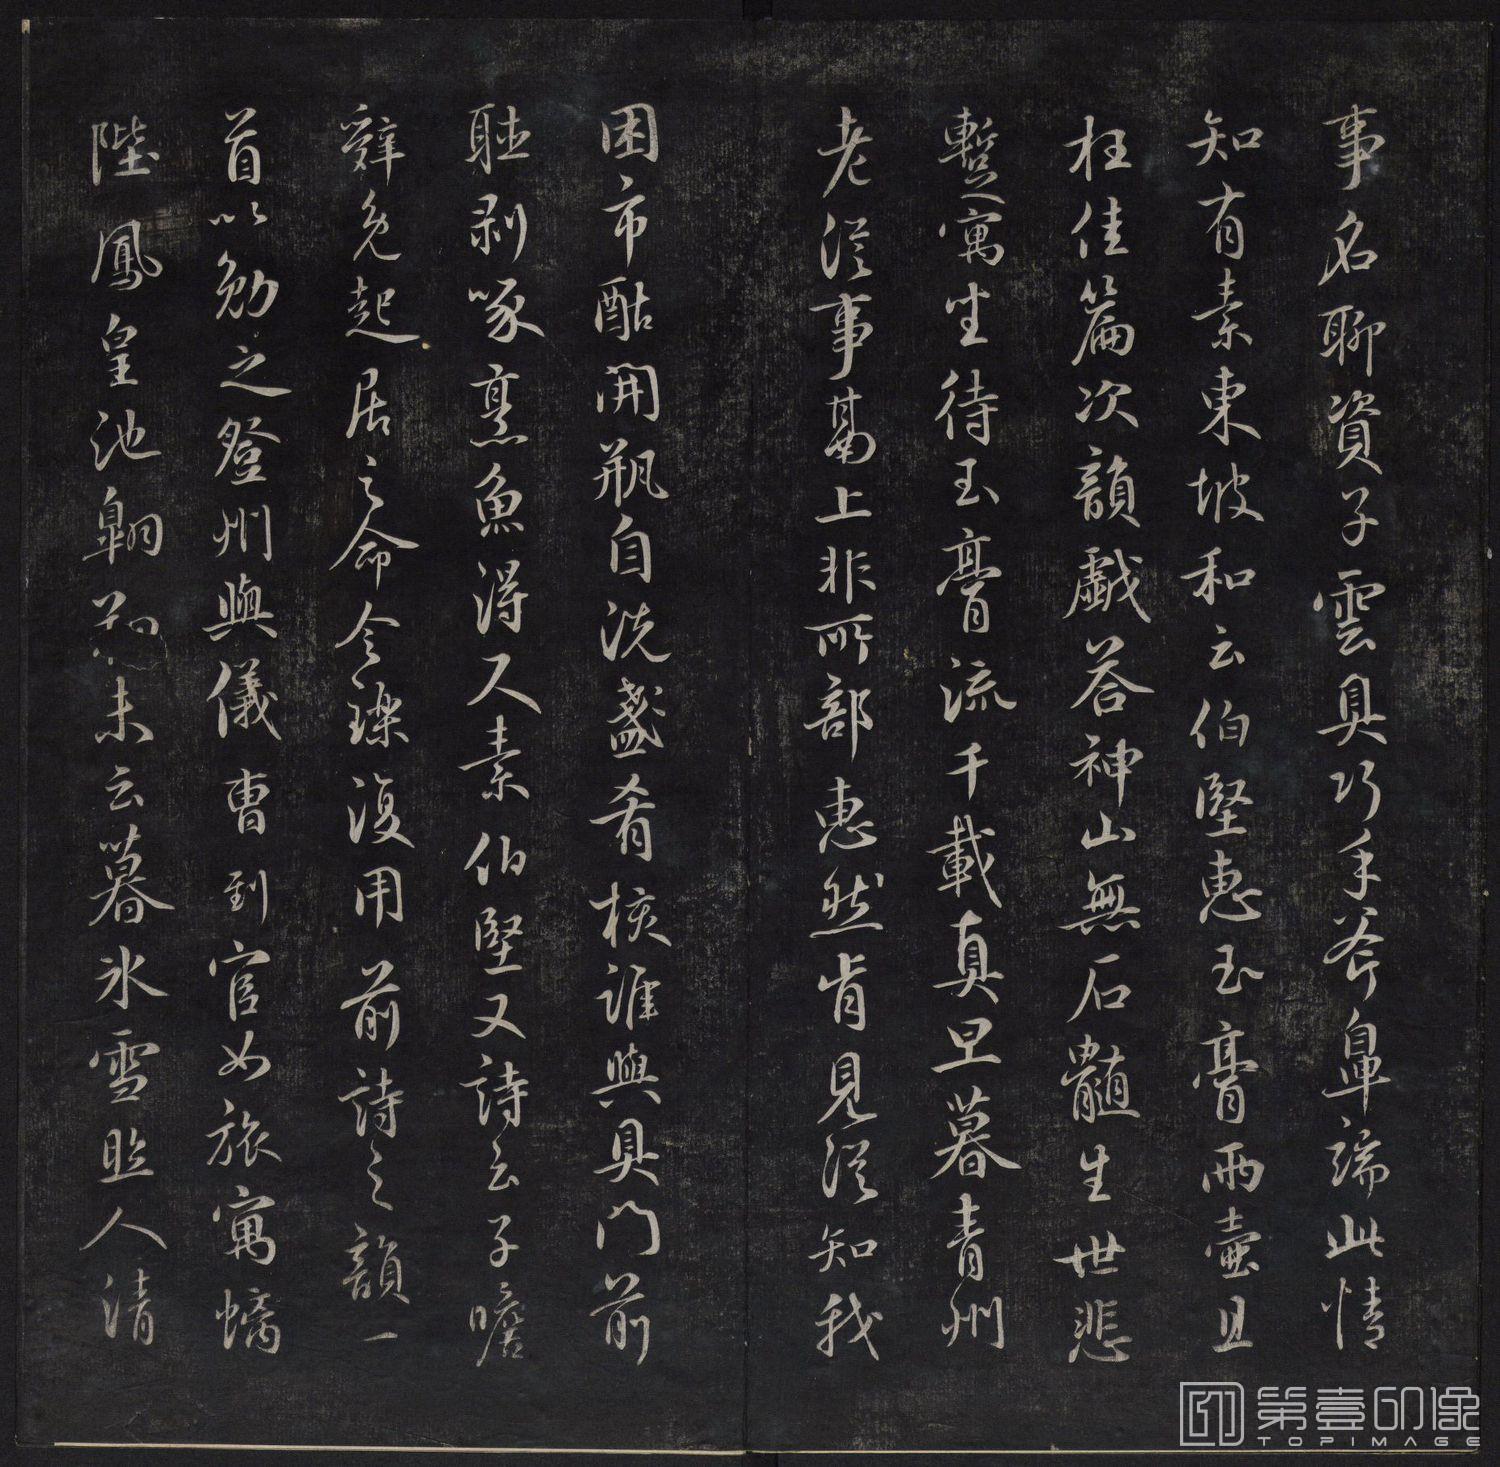 事名聊資子雲具巧手斧鼻端此情
知有素東坡和云伯堅惠玉膏兩壺且
枉佳篇次韻戲答神山無石髓生世悲
暫寓坐待玉膏流千載真旦暮青州
老從事鬲上非所部惠然肯見從知我
困市酤開瓶自洗盞肴核誰與具門前
聽剥啄烹魚得尺素伯堅又詩云子瞻
辭免起居之命令璨復用前詩之韻一
首以勉之登州與儀曹到官如旅寓螭
陛鳳皇池翱翔未云暮冰雪照人清
第壹印像
TOPIMAGE